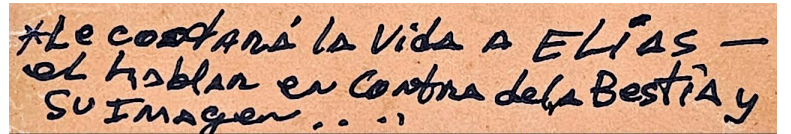 *Le costará la Vida a ELÍAS —
el hablar en contra de la Bestia y
SU IMAgen....